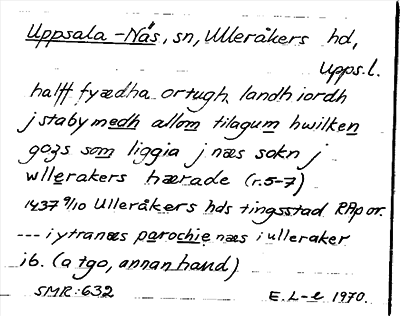 Uppsala-Näs, sn, Ulleråkers hd,
Upps.l.
halff fyædha ortugh landh iordh
j staby medh allom tilagum hwilken
gozs som liggia j næs sokn j
wllerakers hærade (r.5-7)
1437 9/10 Ulleråkers hds tingsstad RAp or.
--- i ytranæs parochie næs i ulleraker
ib. (a tgo, annan hand)
SMR:632 E.L-e 1970.